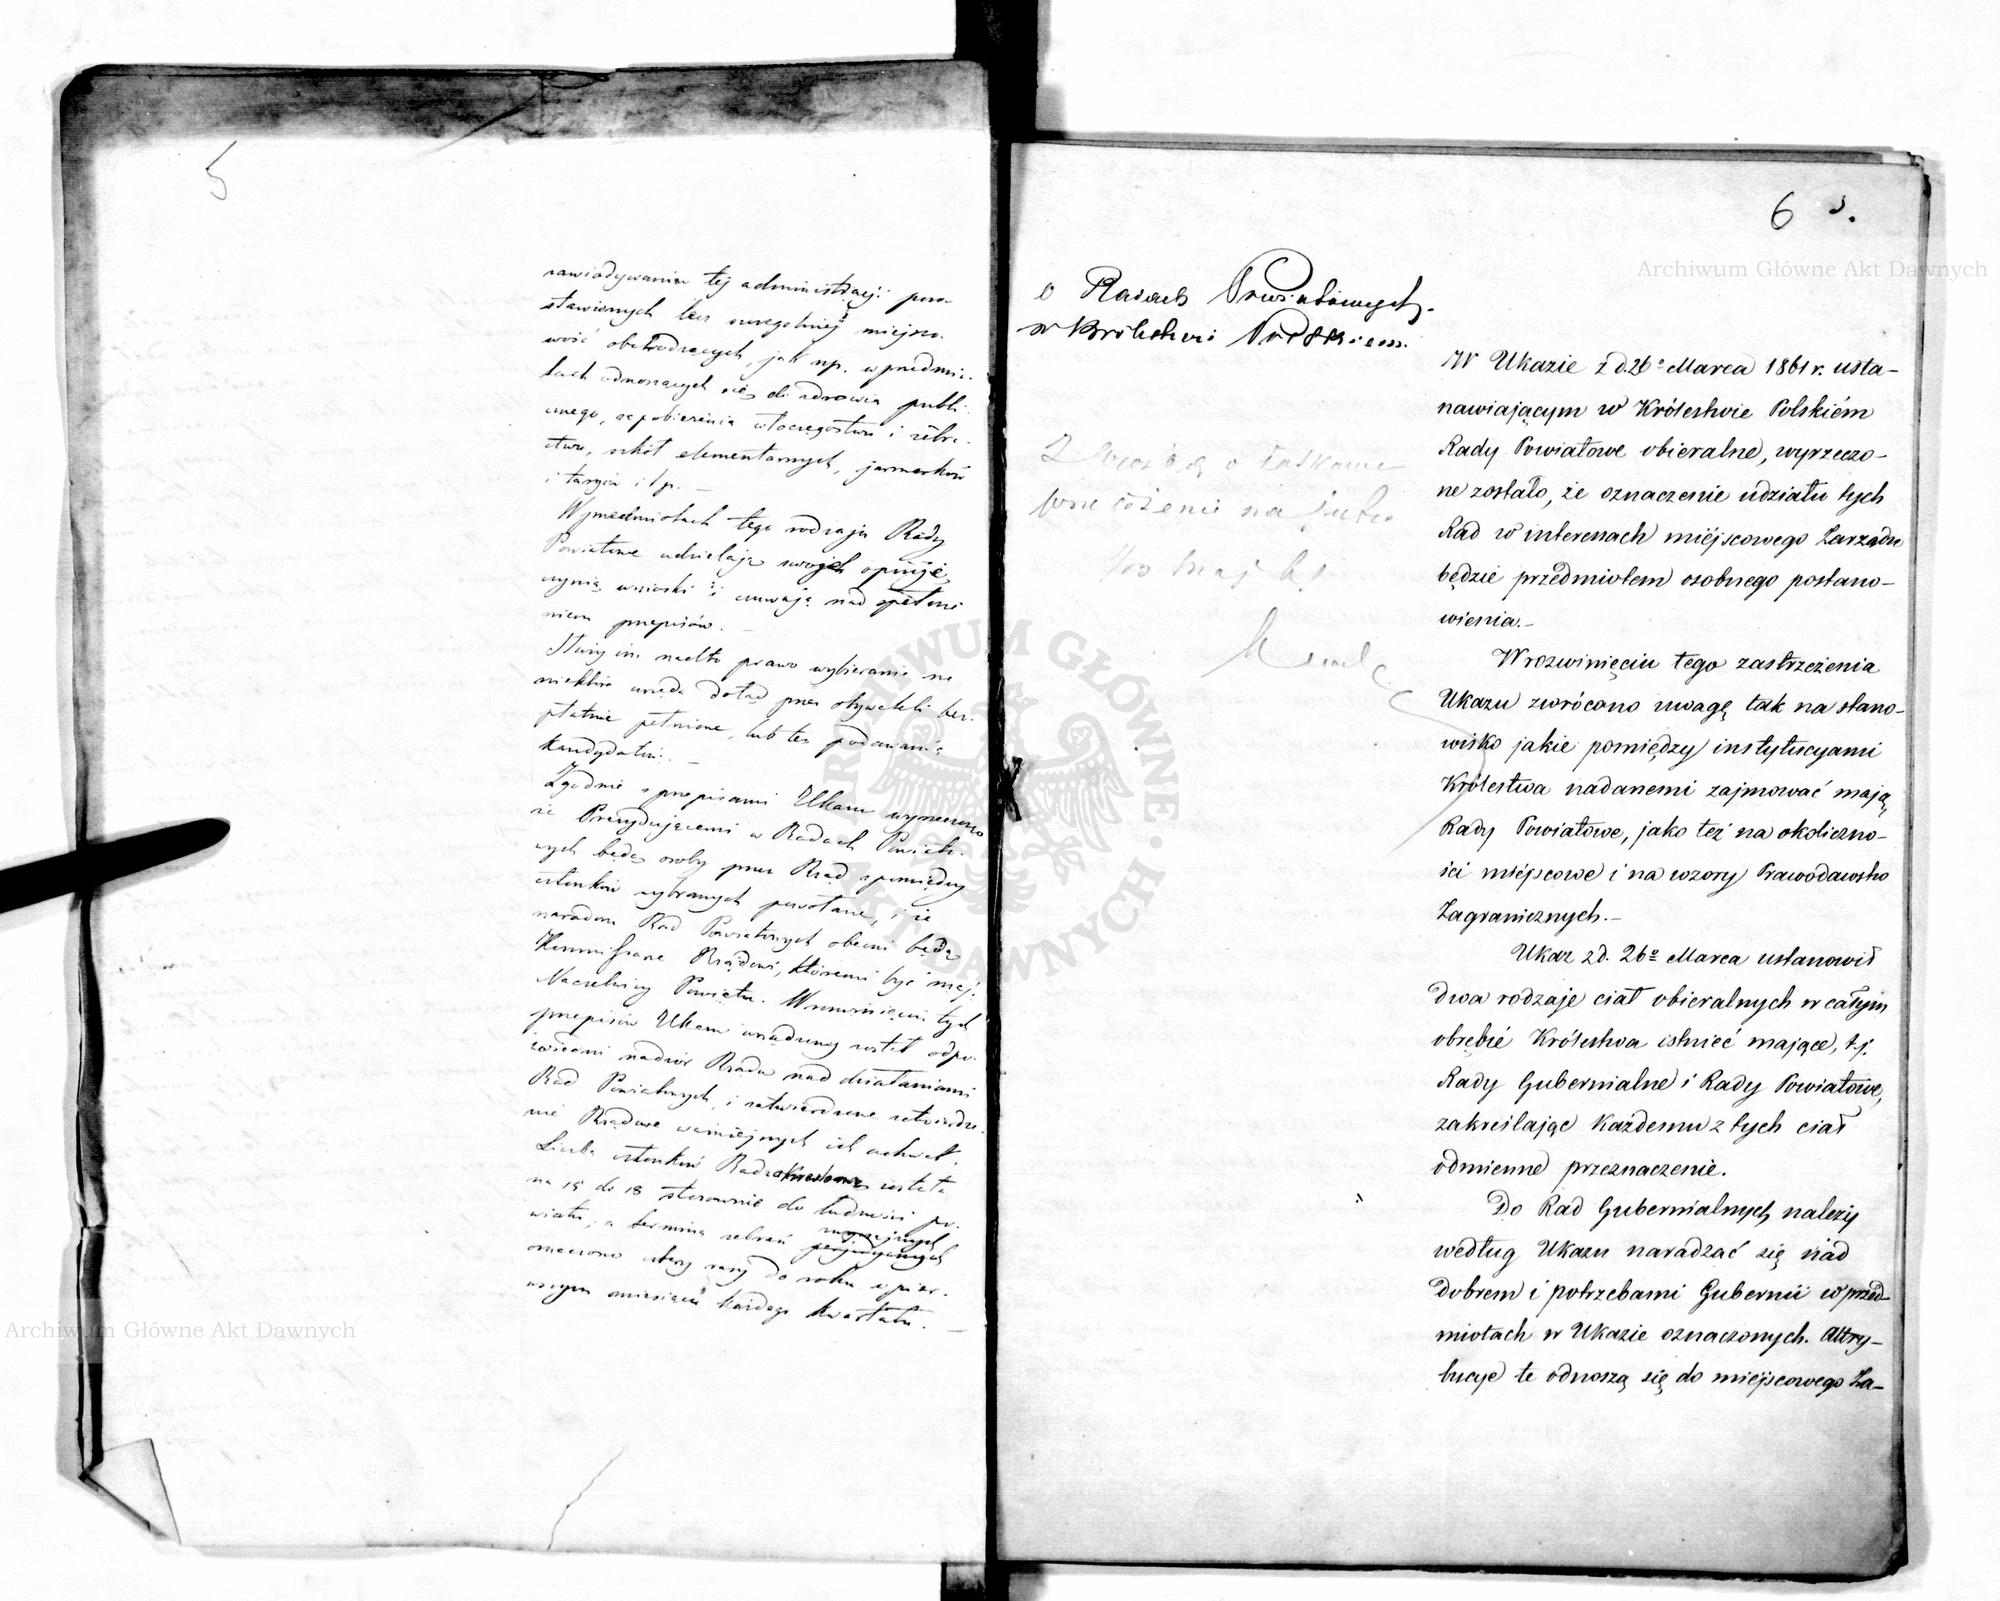 5
zawiadywania tej administracji pozo
stawionych lecz szczególniej miejsco-
wość obchodzących, jak np. w przedmio-
tach odnoszących się do zdrowia publi-
cznego, zapobieżenia włóczęgostwu i żebra-
ctwu, szkół elementarnych, jarmarków
i targów i t p. —
W przedmiotach tego rodzaju Rady
Powiatowe udzielają swojéj opinji,
czynią wnioski i czuwają nad spełnie
niem przepisów. —
Służy im nadto prawo wybierania na
niektóre urzęda dotąd przez obywateli bez-
płatnie pełnione, lub też podawania
kandydatów. —
Zgodnie z przepisami Ukazu wyrzeczono
że Prezydującemi w Radach Powiato-
wych będą osoby przez Rząd z pomiędzy
członków wybranych powołane, i że
naradom Rad Powiatowych obecni będą
Kommissarze Rządowi, któremi być mają
Naczelnicy Powiatu. W rozwinięciu tych
przepisów Ukazu urządzony został odpo-
wiedni nadzór Rządu nad działaniami
Rad Powiatowych, i zatwierdzenie
nie Rządowe ważniejszych ich uchwał.
Liczba członków Rad określona została
na 15 do 18 stosownie do ludności po-
wiatu, a termina zebrań zwyczajnych
oznaczono cztery razy do roku w pier-
wszym miesiącu każdego kwartału. —
6
O Radach Powiatowych
w Królestwie Polskiem.
Z prośbą o łaskawe
na jutro
W Ukazie z d. 26º Marca 1861 r. usta-
nawiającym w Królestwie Polskiém
Rady Powiatowe obieralne, wyrzeczo-
ne zostało, że oznaczenie udziału tych
Rad w interenach miéjscowego Zarządu
będzie przedmiotem osobnego postano-
wienia. —
W rozwinięciu tego zastrzeżenia
Ukazu zwrócono uwagę tak na stano-
wisko jakie pomiędzy instytucyami
Królestwa nadanemi zajmować mają
Rady Powiatowe, jako też na okoliczno-
ści miéjscowe i na wzory Prawodawstw
Zagranicznych. —
Ukaz z d. 26º Marca ustanowił
dwa rodzaje ciał obieralnych w całym
obrębie Królestwa istnieć mające, t. j.
Rady Gubernialne i Rady Powiatowe,
zakreślając każdemu z tych ciał
odmienne przeznaczenie.
Do Rad Gubernialnych należy
według Ukazu naradzać się nad
dobrem i potrzebami Gubernii w przed-
miotach w Ukazie oznaczonych. Attry-
bucye te odnoszą się do miéjscowego Za-
Archiwum Główne Akt Dawnych
Archiwum Główne Akt Dawnych
ARCHIWUM GŁÓWNE AKT DAWNYCH